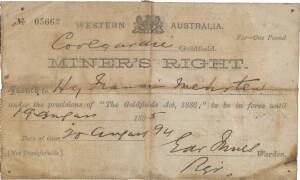 No 05662
WESTERN AUSTRALIA.
For—One Pound.
Coolgardie
Goldfield.
MINER'S RIGHT.
Issued to Hy Francis
under the provisions of "The Goldfields Act, 1886," to be in force until
19 August 1895
Date of issue 20 August 94
(Not Transferable)
Warden.